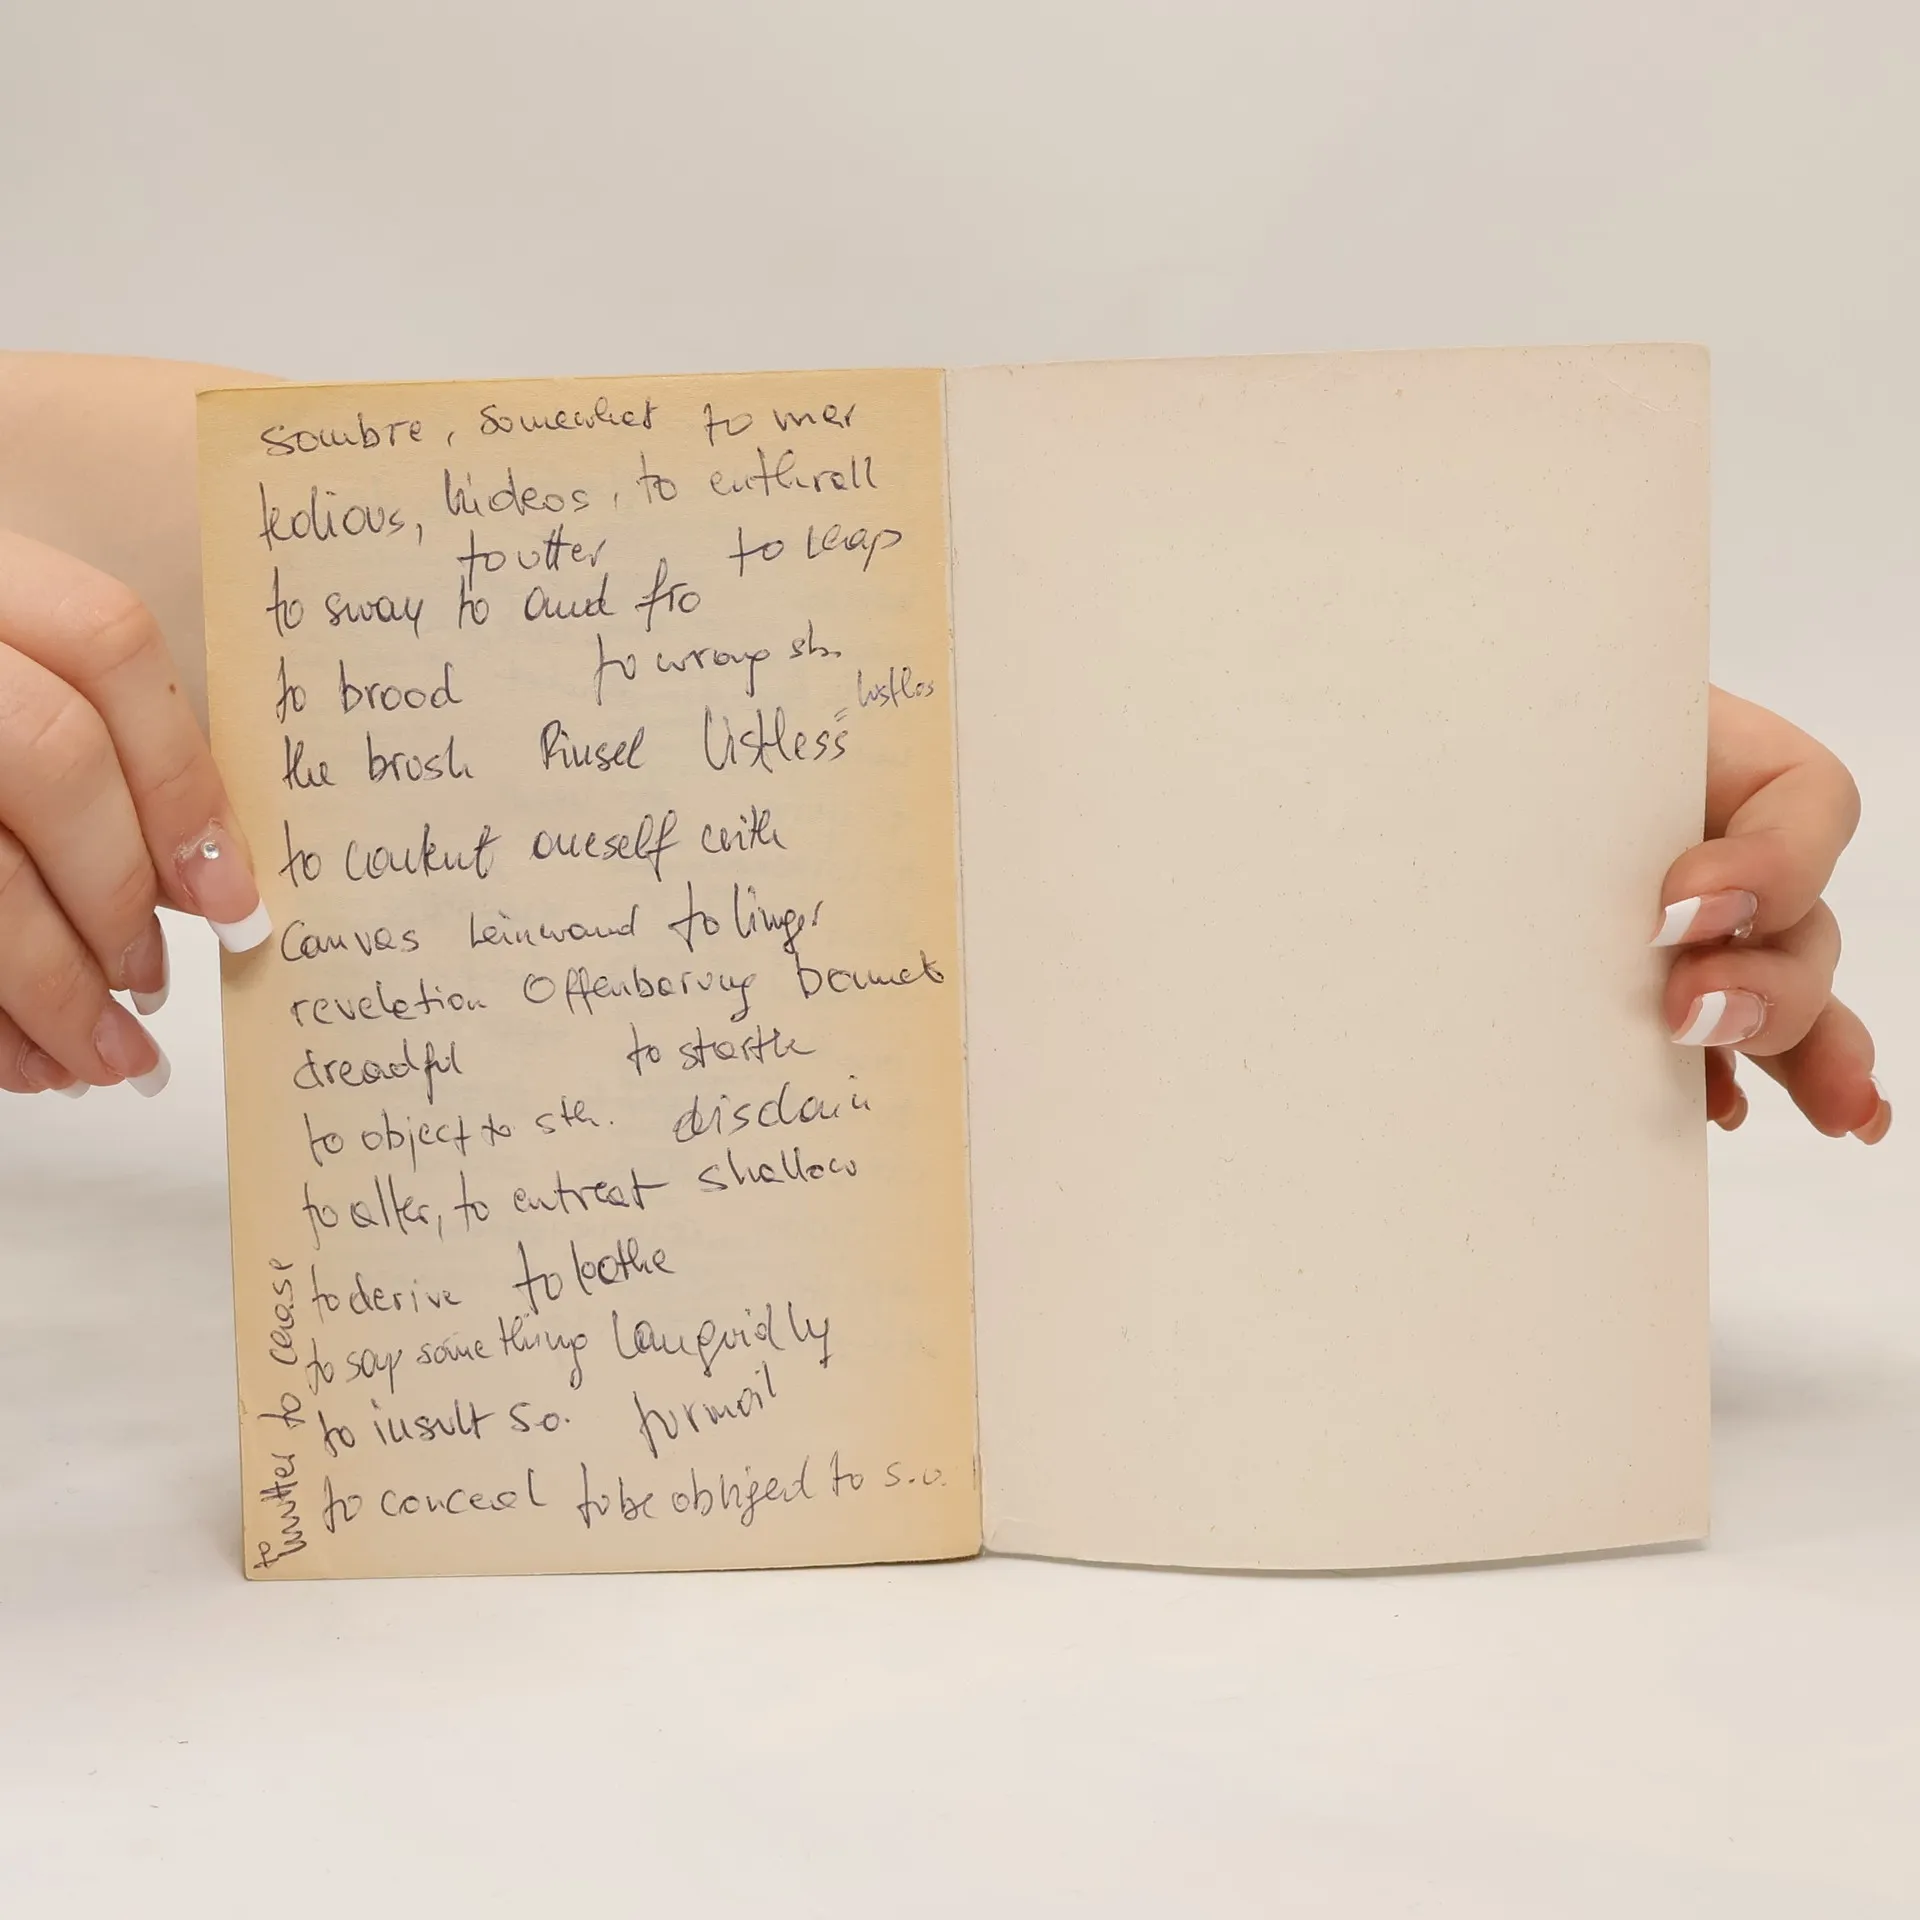 sombre, somewhat to mar
tedious, hideos, to enthrall
to utter to leap
to sway to and fro
to brood to wrong sb.
the brush Pinsel listless = lustlos
to content oneself with
Canvas Leinwand to linger
revelation Offenbarung bonnet
dreadful to startle
to object to sth. disdain
to alter, to entreat shallow
to derive to loathe
to say something languidly
to insult so. turmoil
to conceal to be obliged to s.o.
to mutter to cease